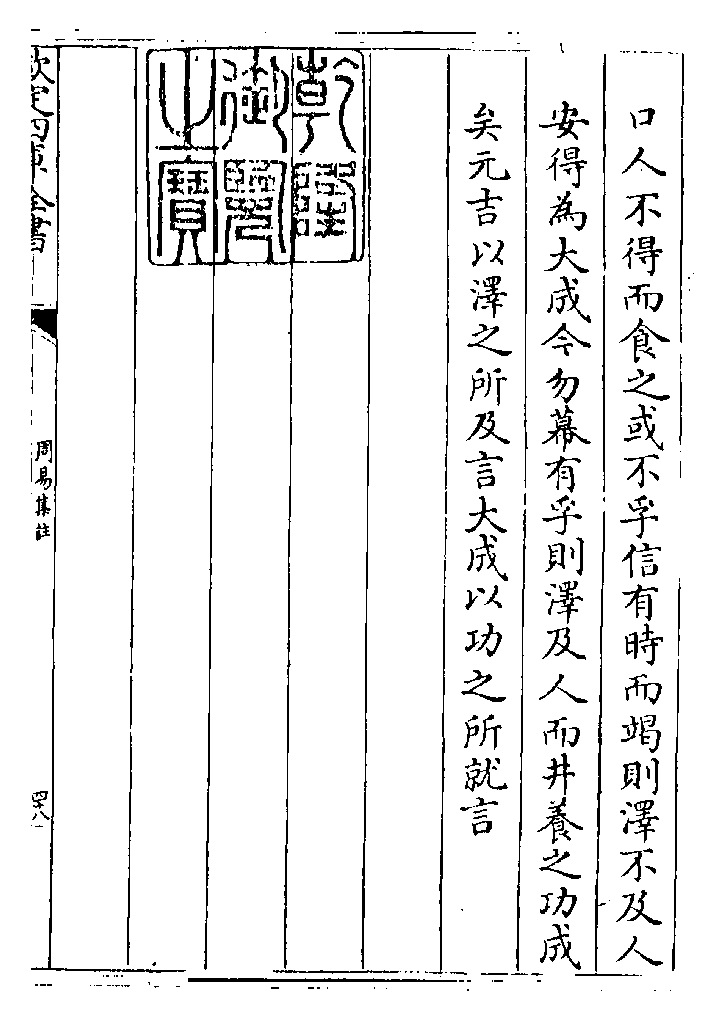 口人不得而食之或不孚信有時而竭則澤不及人
安得為大成今勿幕有孚則澤及人而井養之功成
矣元吉以澤之所及言大成以功之所就言
乾隆
御覽
之寶
欽定四庫全書
周易集註
四十八